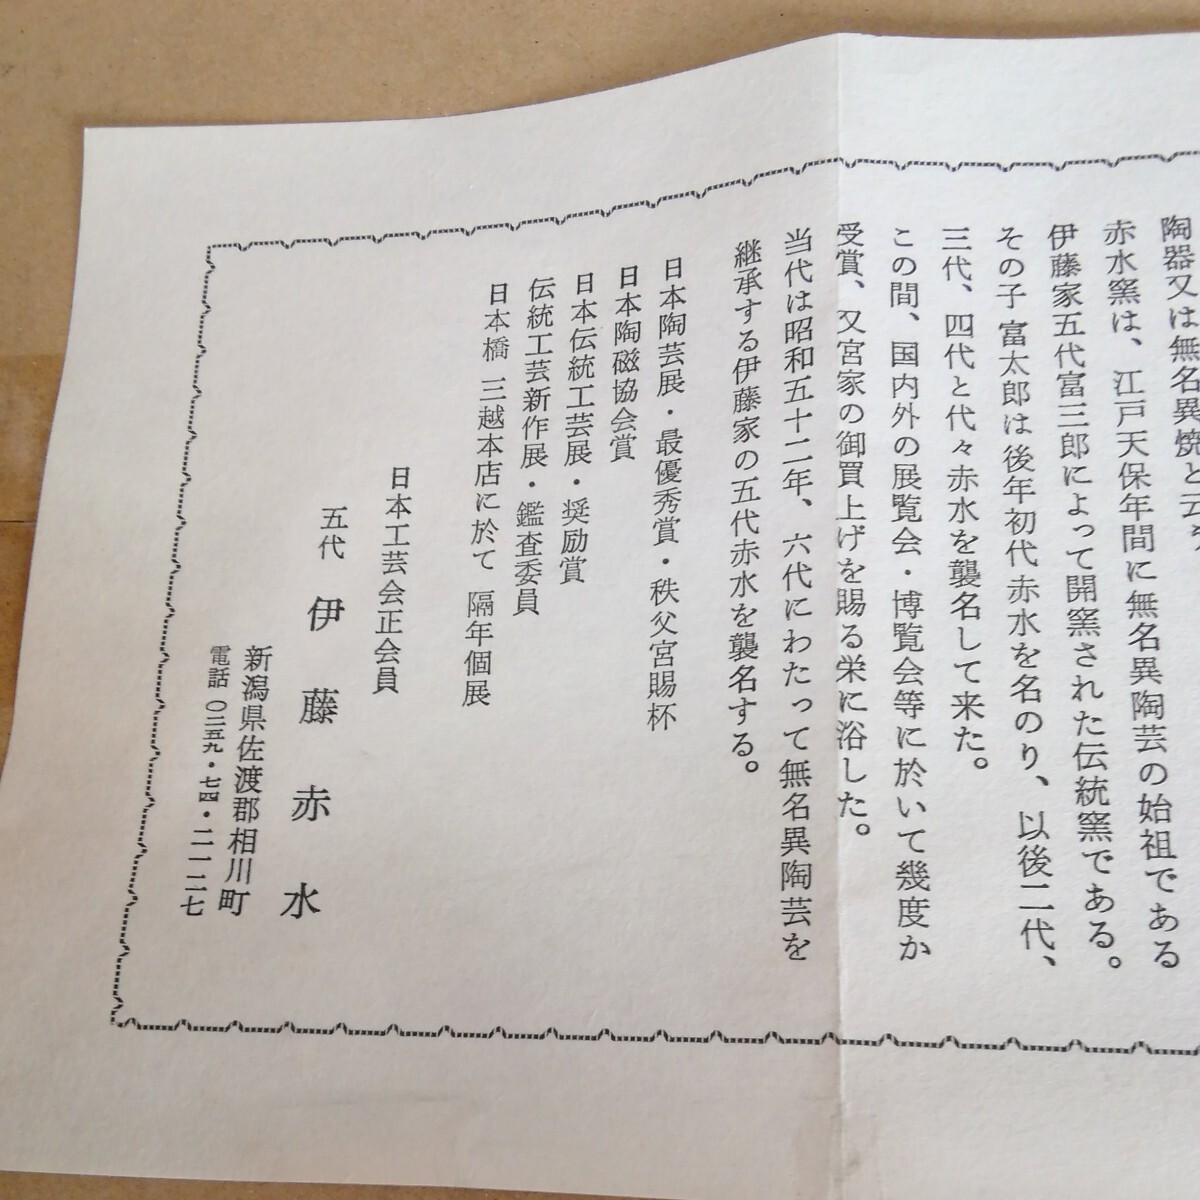 陶器又は無名異焼と云う
赤水窯は、江戸天保年間に無名異陶芸の始祖である
伊藤家五代富三郎によって開窯された伝統窯である。
その子 富太郎は後年初代赤水を名のり、以後二代、
三代、四代と代々赤水を襲名して来た。
この間、国内外の展覧会・博覧会等に於いて幾度か
受賞、又宮家の御買上げを賜る栄に浴した。
当代は昭和五十二年、六代にわたって無名異陶芸を
継承する伊藤家の五代赤水を襲名する。
日本陶芸展・最優秀賞・秩父宮賜杯
日本陶磁協会賞
日本伝統工芸展・奨励賞
伝統工芸新作展・鑑査委員
日本橋 三越本店に於て 隔年個展
日本工芸会正会員
五代 伊藤赤水
新潟県佐渡郡相川町
電話 〇二五九・七四・二一二七